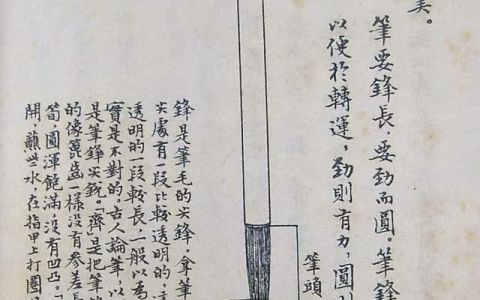 美。
筆要鋒長，要勁而圓。筆鋒
以便於轉運，勁則有力，圓
筆頭
鋒是筆毛的尖鋒。拿筆
尖處有一段比較透明的，這
透明的一段較長，一般以為
實是不對的。古人論筆，以
是筆鋒尖銳。「齊是把筆
的像篦齒一樣沒有參差長
筍，圓渾飽滿，沒有凹凸。「
開，蘸些水，在指甲上打圈